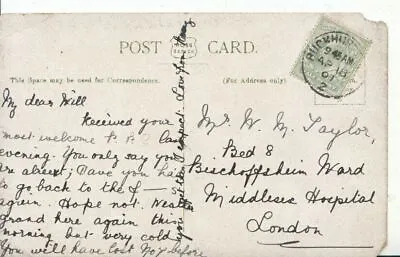 POST CARD.
This Space may be used for Correspondence.
(For Address only.)
BUCKHURST
9 45 AM
AP 18
07
2
My dear Will
Received your
most welcome P.P.C last
evening. You only say you
are alive; Have you had
to go back to the L—
again. Hope not. Weather
grand here again this
morning but very cold
You will have lost Roy before
you get this I expect. London
Mr W. M. Taylor,
Bed 8
Bischoffsheim Ward
Middlesex Hospital
London